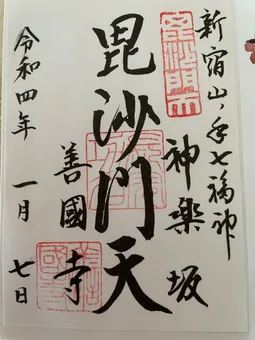 新宿山ノ手七福神
神楽坂
毘沙門天
善國寺
令和四年 一月 七日
毘沙門天